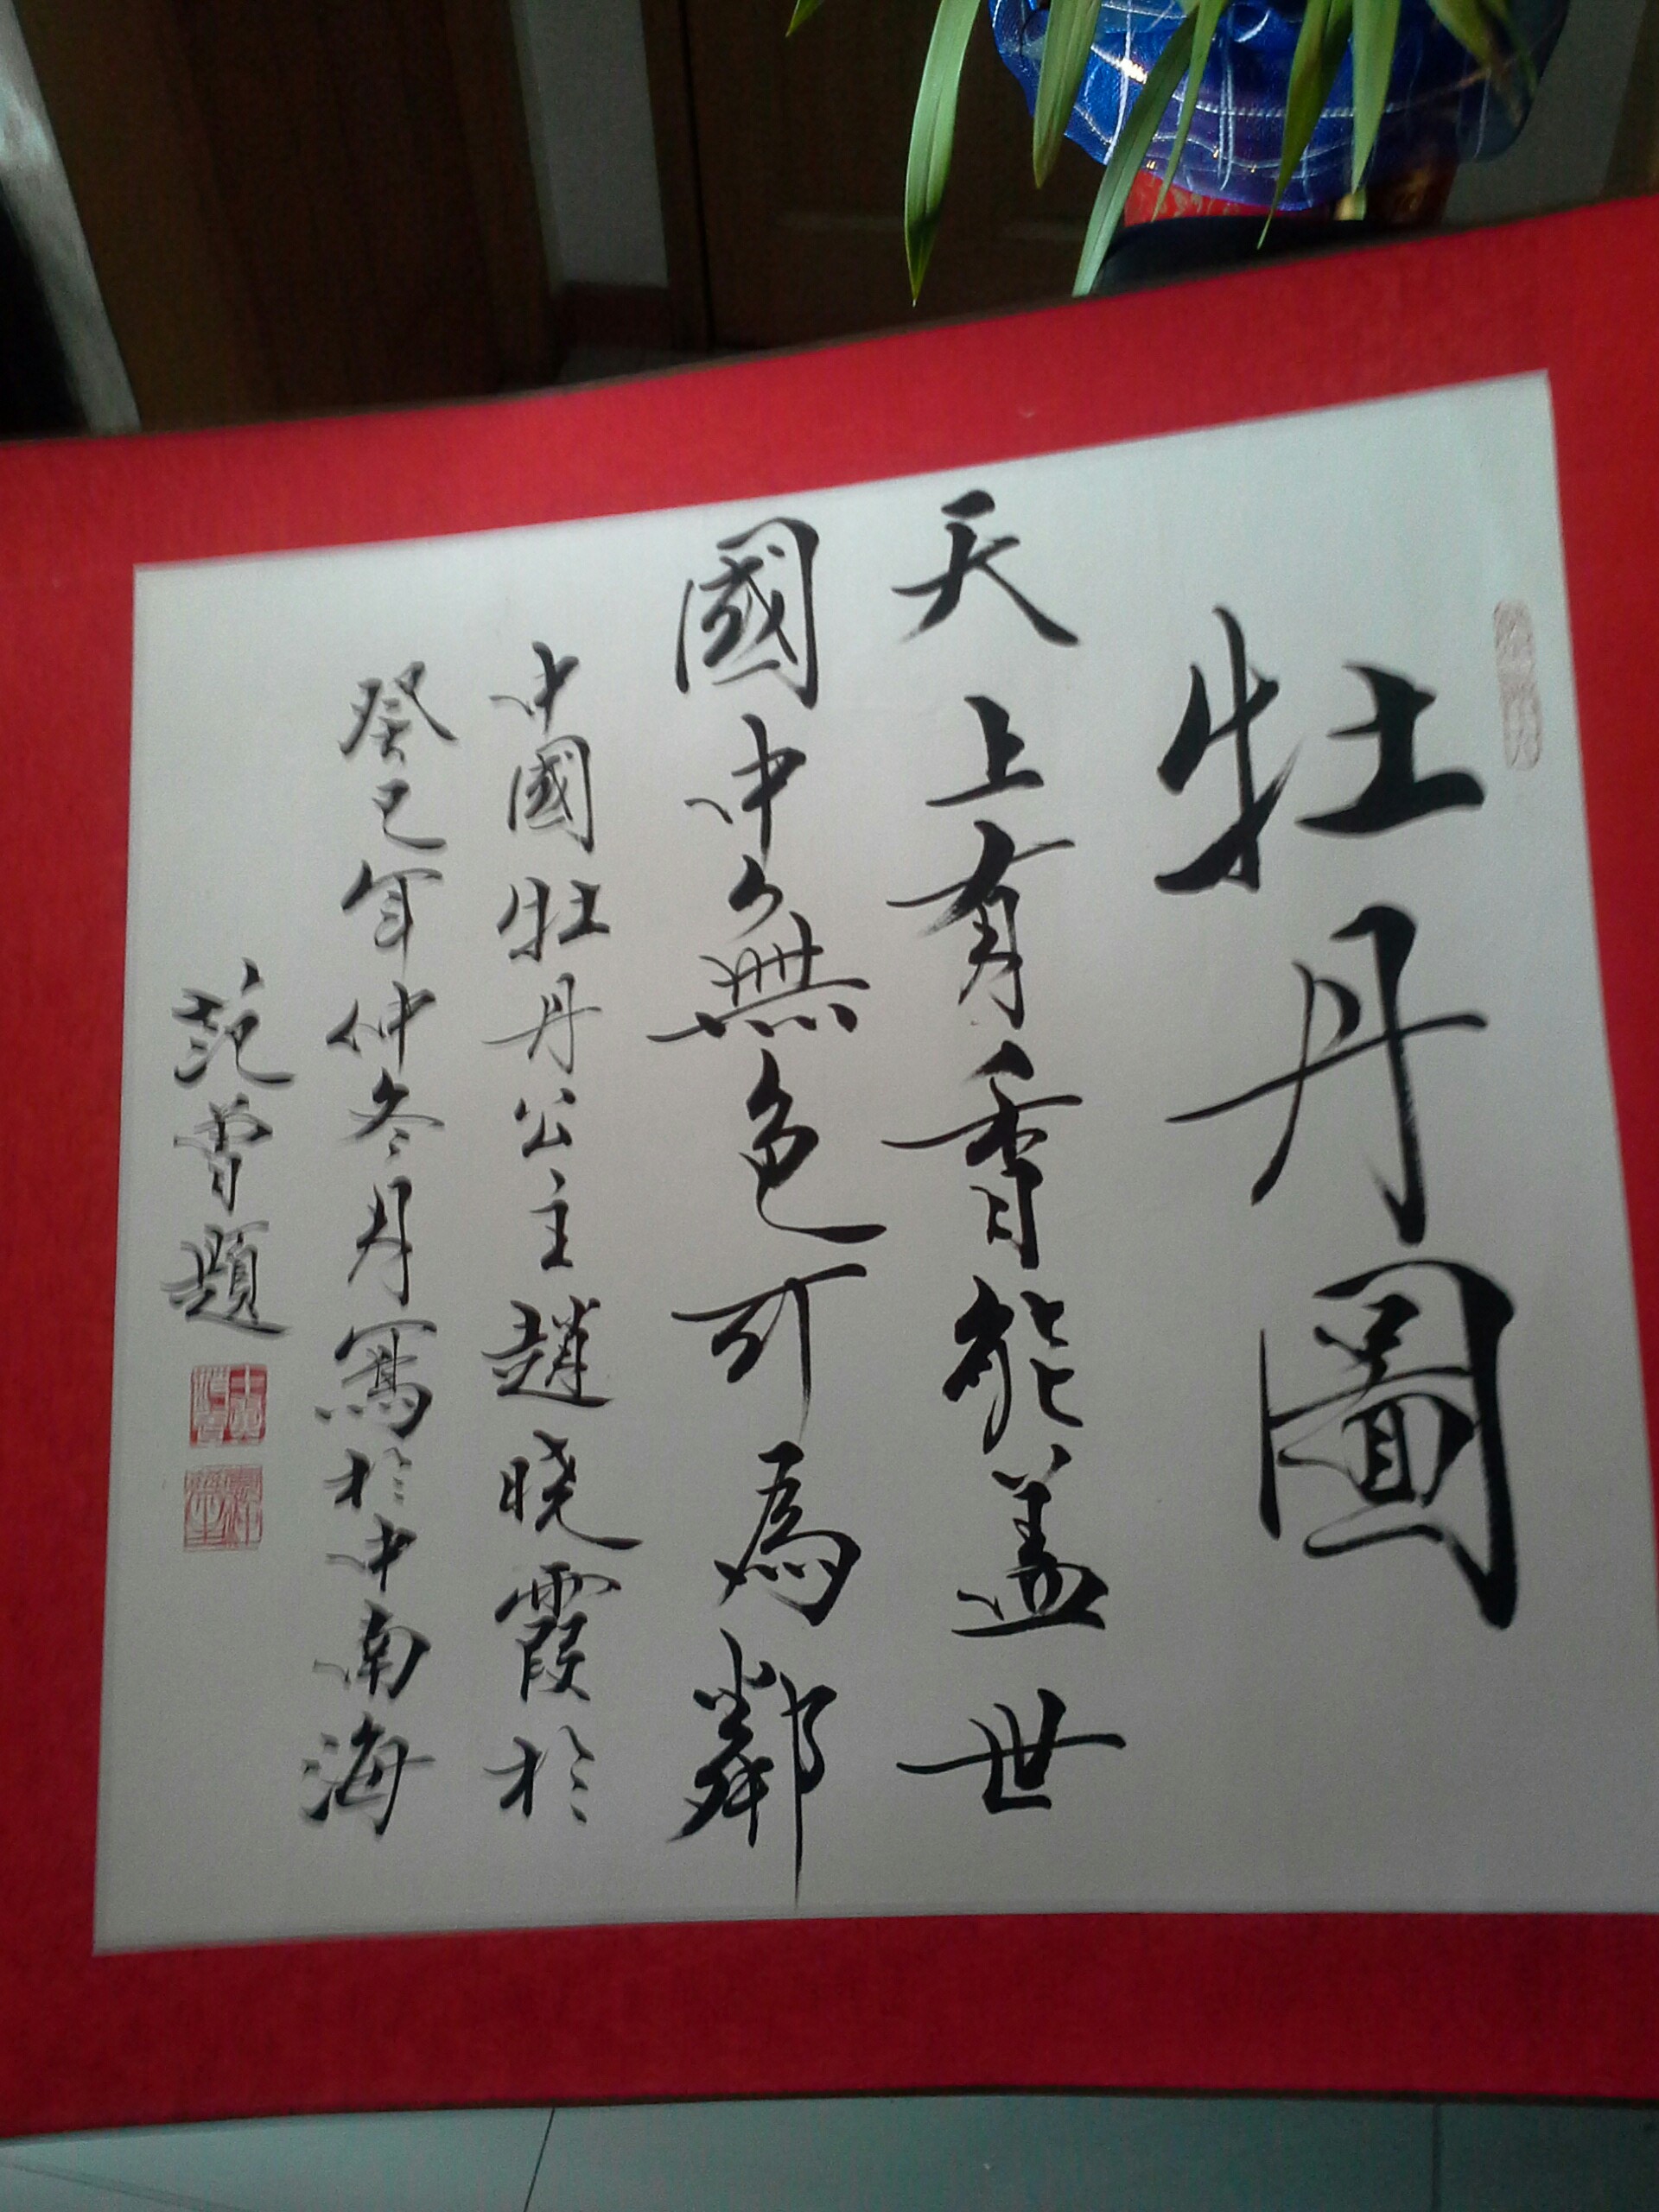 牡丹圖
天上有香能盖世
國中無色可為鄰
中國牡丹公主趙晓霞於
癸巳年仲冬月寫於中南海
范曾題